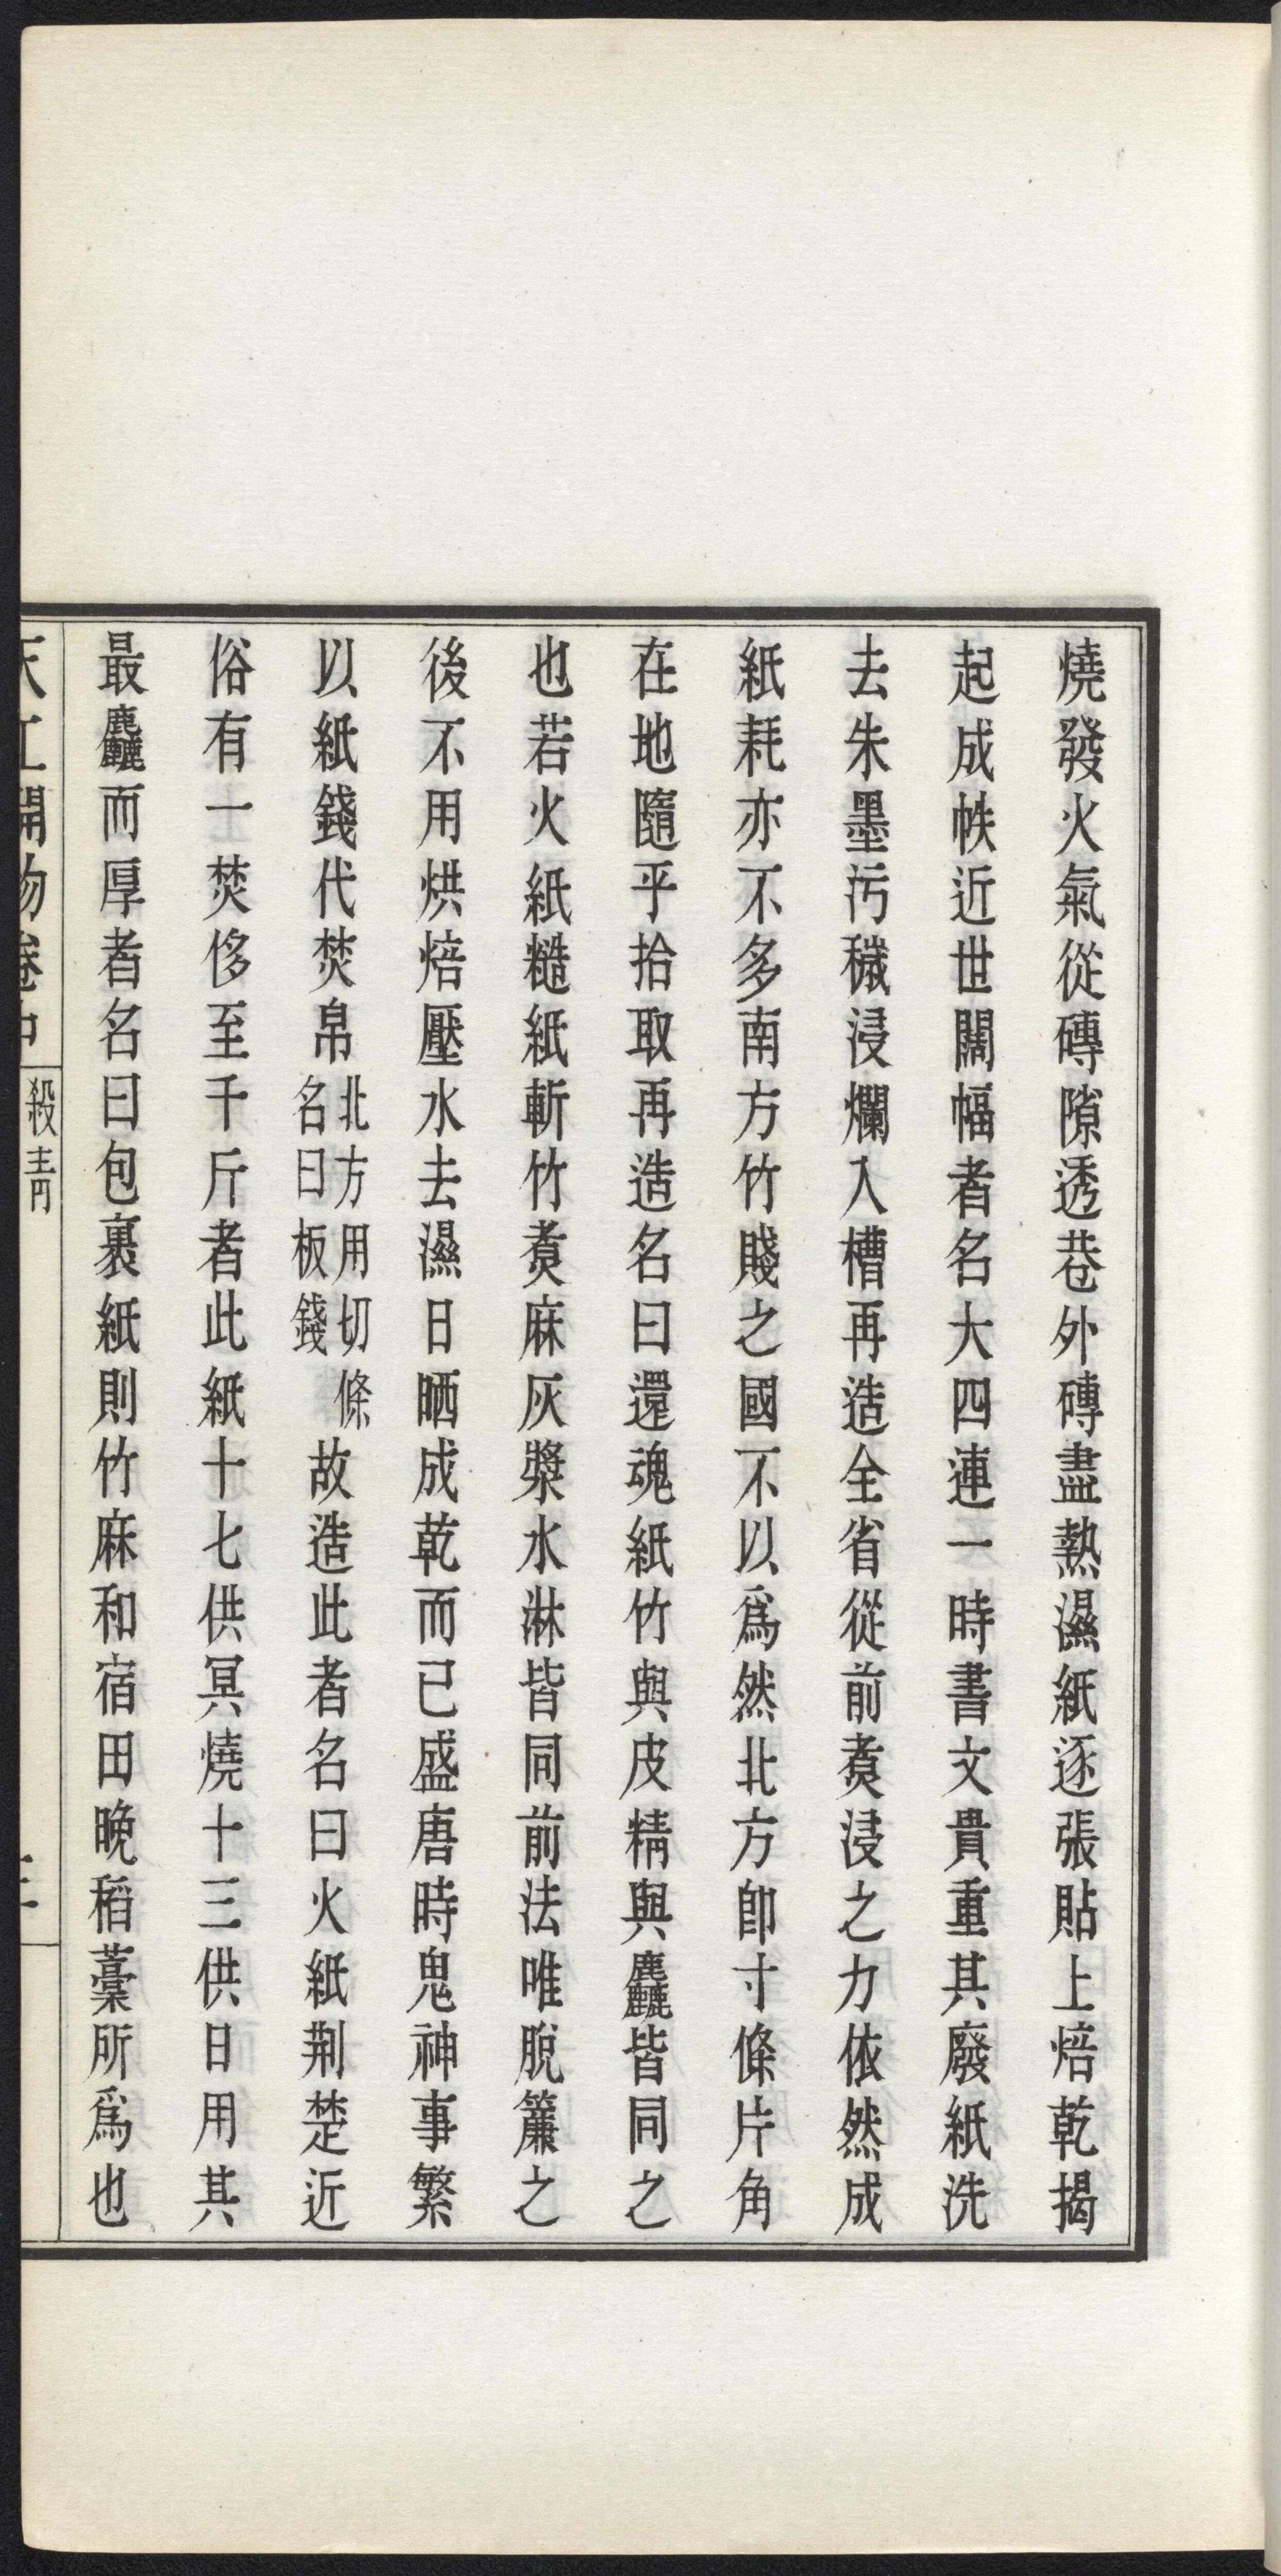 燒發火氣從磚隙透巷外磚盡熱濕紙逐張貼上焙乾揭
起成帙近世闊幅者名大四連一時書文貴重其廢紙洗
去朱墨污穢浸爛入槽再造全省從前煑浸之力依然成
紙耗亦不多南方竹賤之國不以爲然北方卽寸條片角
在地隨手拾取再造名曰還魂紙竹與皮精與麤皆同之
也若火紙糙紙斬竹煑麻灰漿水淋皆同前法唯脫簾之
後不用烘焙壓水去濕日晒成乾而已盛唐時鬼神事繁
以紙錢代焚帛北方用切條名曰板錢故造此者名曰火紙荆楚近
俗有一焚侈至千斤者此紙十七供冥燒十三供日用其
最麤而厚者名曰包裹紙則竹麻和宿田晚稻藁所爲也
天工開物卷中 殺青